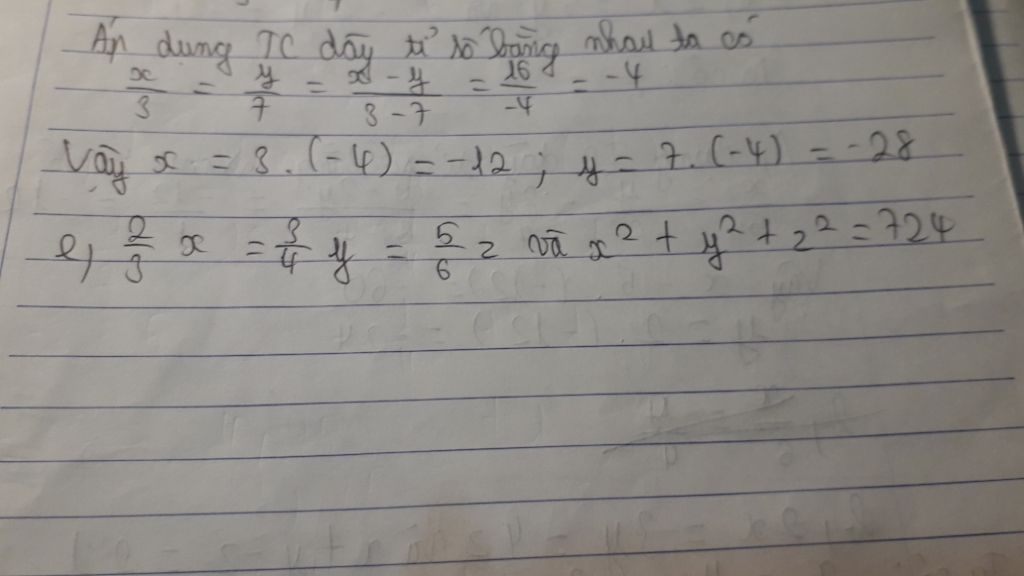 Áp dụng TC dãy tỉ số bằng nhau ta có
x/3 = y/7 = x - y/3 - 7 = 16/-4 = -4
Vậy x = 3 . (-4) = -12 ; y = 7 . (-4) = -28
e, 2/3 x = 3/4 y = 5/6 z và x² + y² + z² = 724